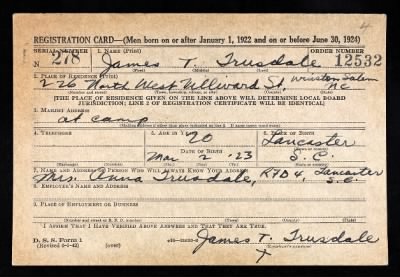 4
REGISTRATION CARD—(Men born on or after January 1, 1922 and on or before June 30, 1924)
SERIAL NUMBER 1. NAME (Print) ORDER NUMBER
N 278 James T. Trusdale 12532
(First) (Middle) (Last)
2. PLACE OF RESIDENCE (Print)
226 North West Street, Winston Salem NC
(Number and street) (Town, township, village, or city) (County) (State)
[THE PLACE OF RESIDENCE GIVEN ON THE LINE ABOVE WILL DETERMINE LOCAL BOARD
JURISDICTION; LINE 2 OF REGISTRATION CERTIFICATE WILL BE IDENTICAL]
3. MAILING ADDRESS
at camp
4. TELEPHONE 5. AGE IN YEARS 6. PLACE OF BIRTH
20 Lancaster
DATE OF BIRTH
Mar 2 23 S. C.
7. NAME AND ADDRESS OF PERSON WHO WILL ALWAYS KNOW YOUR ADDRESS
Mrs. Anna Trusdale, RFD 4, Lancaster S.C.
8. EMPLOYER'S NAME AND ADDRESS
9. PLACE OF EMPLOYMENT OR BUSINESS
(Number and street or R. F. D. number) (Town) (County) (State)
I AFFIRM THAT I HAVE VERIFIED ABOVE ANSWERS AND THAT THEY ARE TRUE.
D. S. S. Form 1
(Revised 6-1-42) (over) James T. Trusdale
X